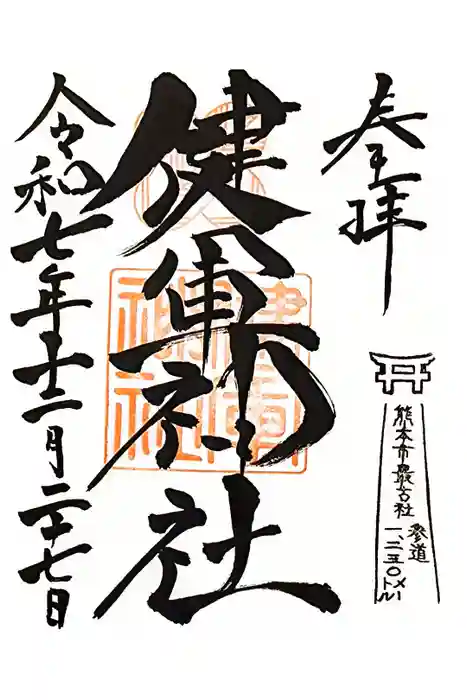 奉拝
熊本市最古社
参道
一、二五〇メートル
健軍神社
令和七年十二月二十七日